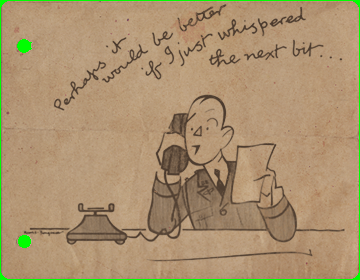 Perhaps it
would be better
if I just whispered
the next bit...